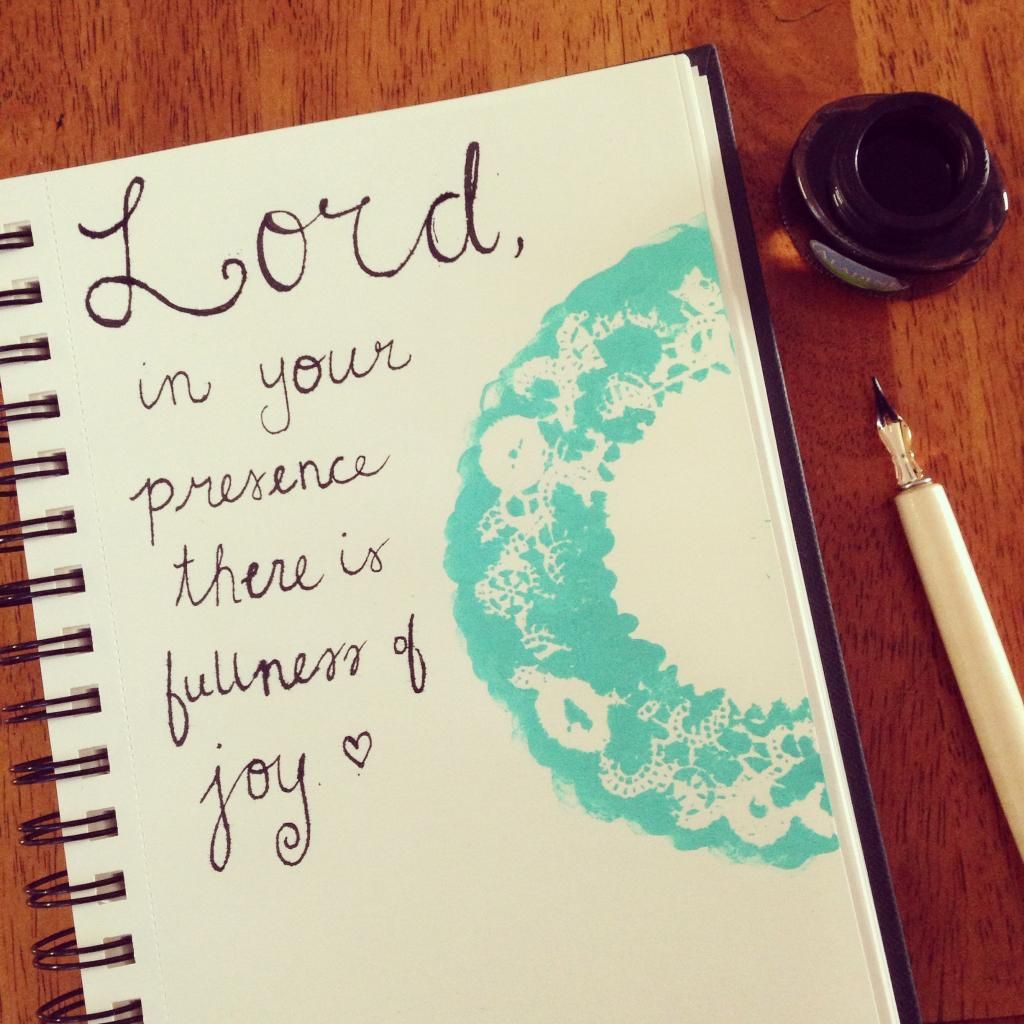 Lord,
in your
presence
there is
fullness of
joy. ♡